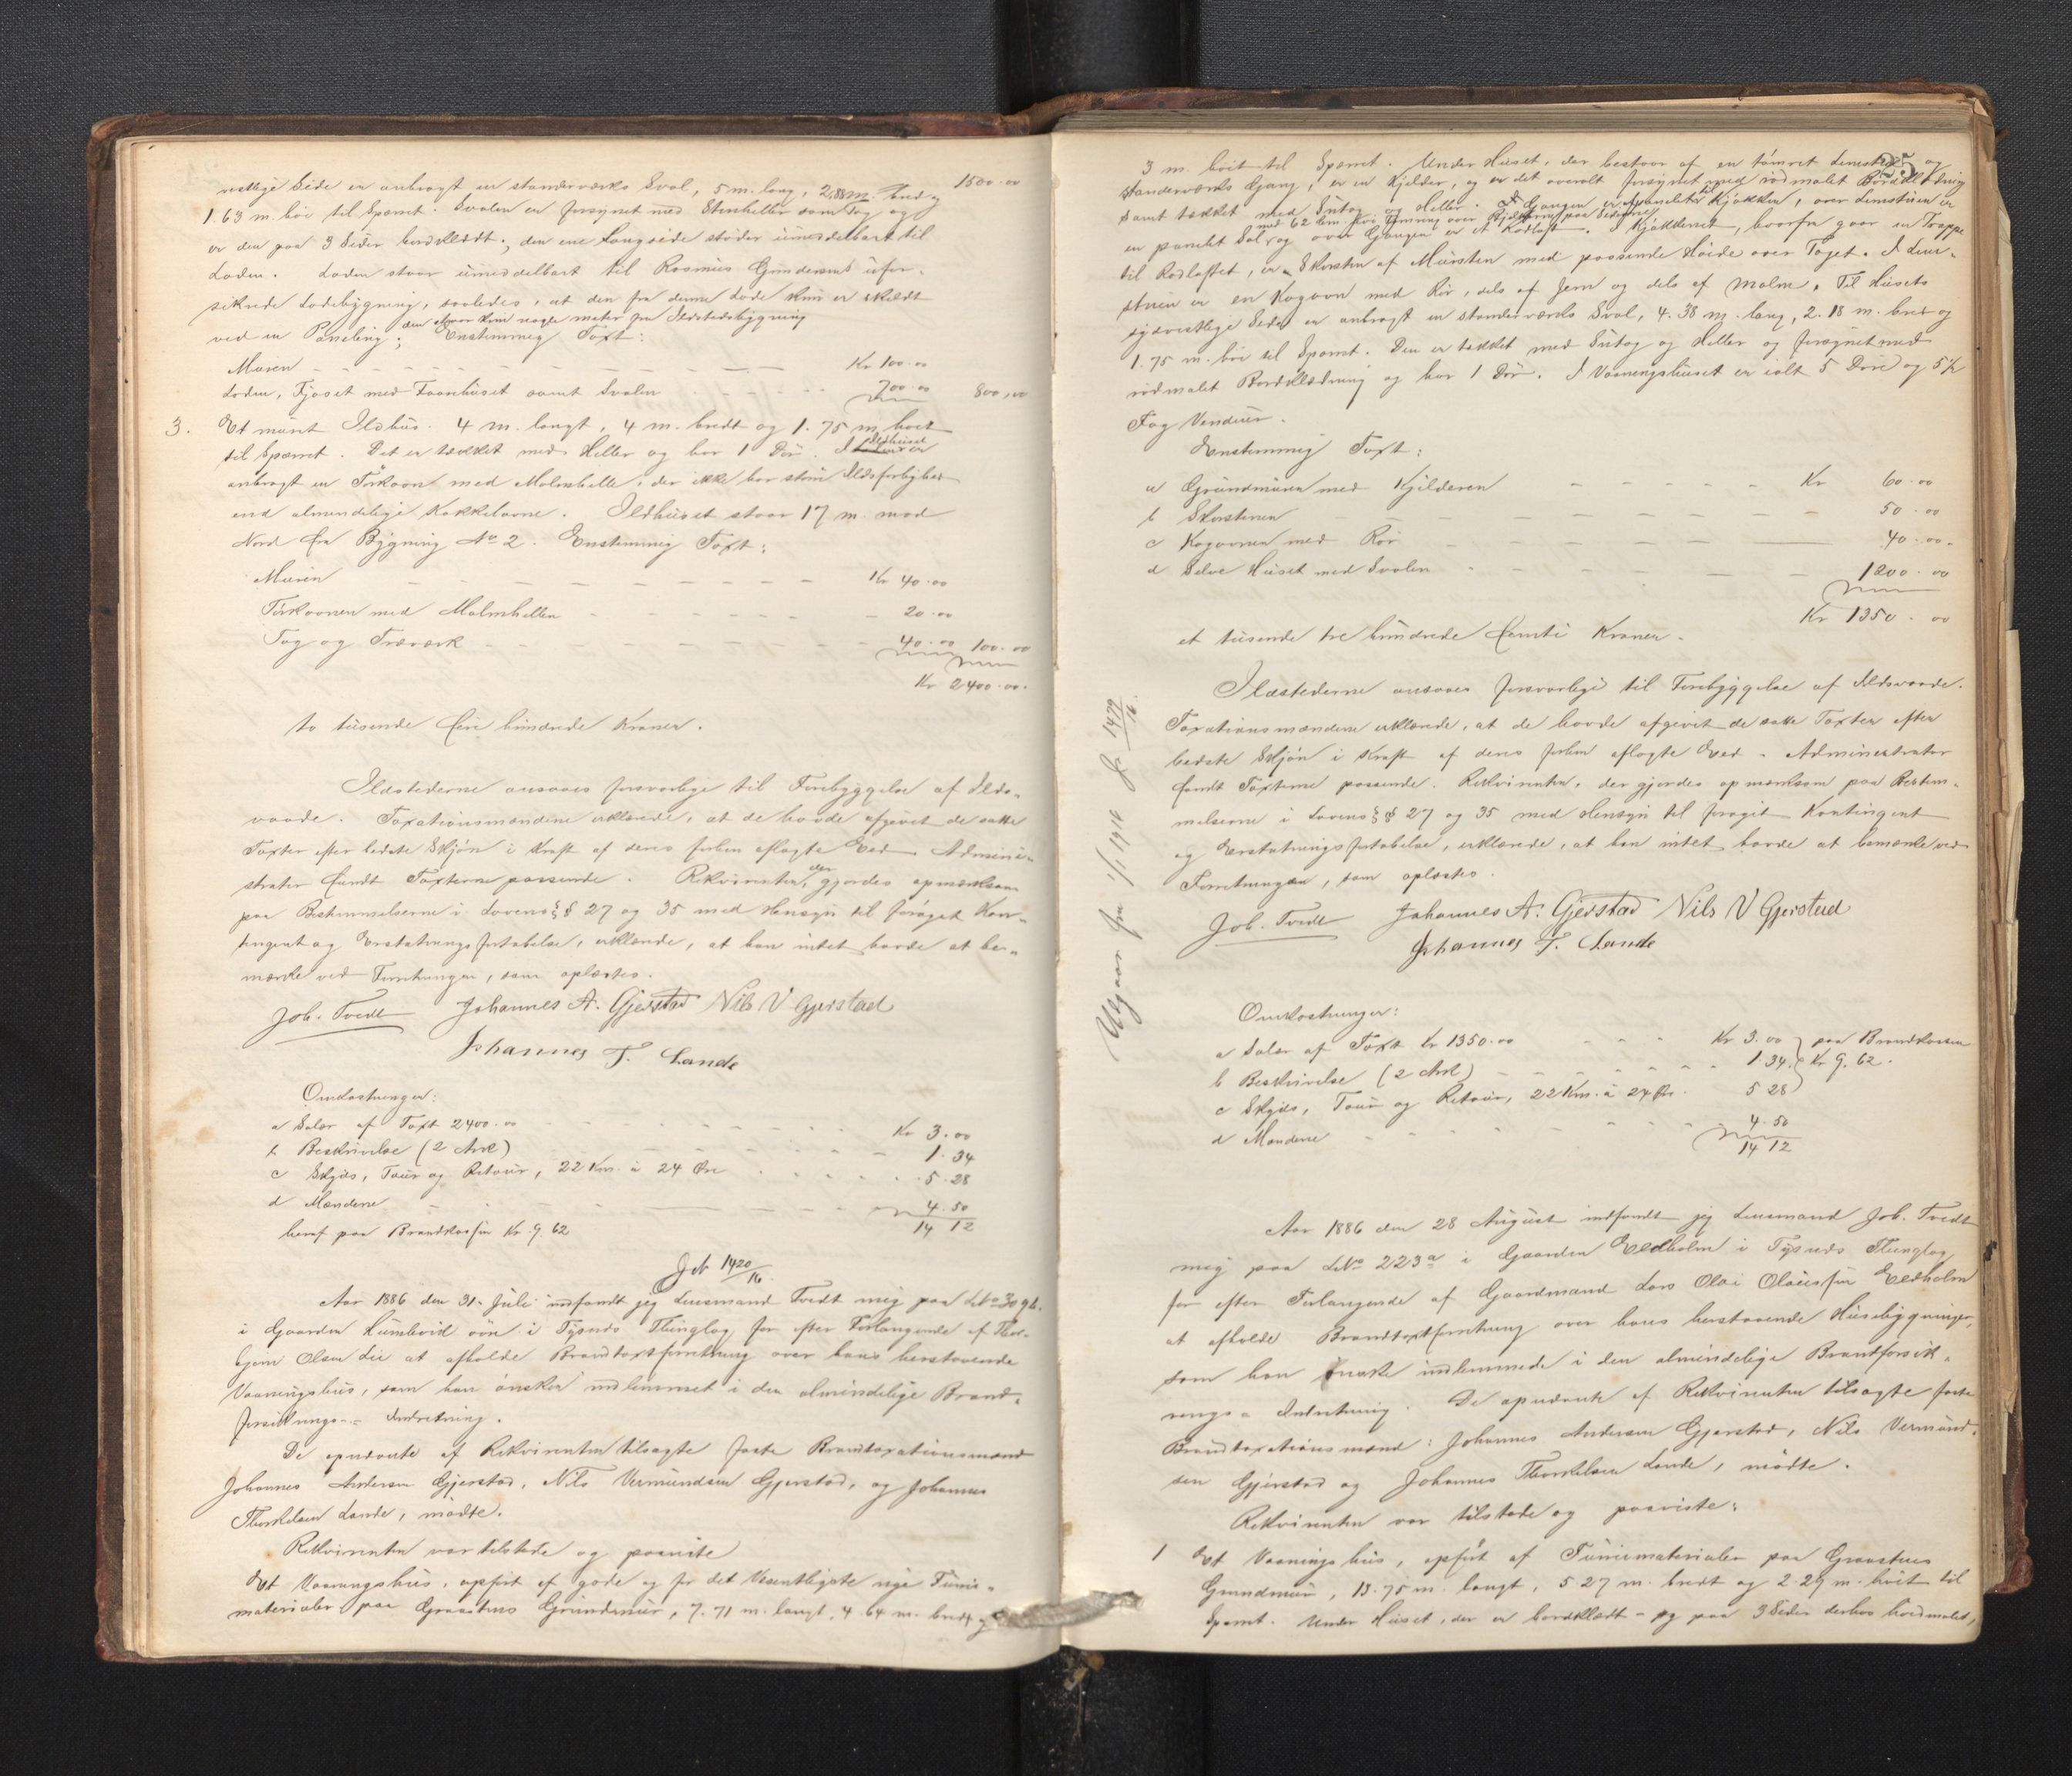 vestlige Side er anbragt en standerværks Sval, 5 m. lang, 2,88 m. bred og 1500.00
1.63 m. høi til Spærret. Svalen er forsynet med Stenheller som Tag og
er den paa 3 Sider bordklædt; den ene Langside støder umiddelbart til
Laden. Laden staar umiddelbart til Rasmus Gundersens ufor-
sikrede Ladebygning, saaledes, at den fra denne Lade kun er skildt
ved en Paneling; den staar kun nogle meter fra Ildstedsbygning Enstemmig Taxt:
Muren Kr 100.00
Laden, Fjøset med Faarehuset samt Svalen 700.00 800,00
3. Et muret Ildhus. 4 m. langt, 4 m. bredt og 1.75 m. høit
til Spærret. Det er tækket med Heller og har 1 Dør. I Ildhuset er
anbragt en Tørkovn med Malmhelle, der ikke har større Ildsfarlighed
end almindelige Kakkelovne. Ildhuset staar 17 m. mod
Nord fra Bygning No 2. Enstemmig Taxt:
Muren Kr 40.00
Tørkovnen med Malmhellen 20.00
Tag og Træværk 40.00 100.00
Kr 2400.00.
to tusende fire hundrede Kroner.
Ildstederne ansaaes forsvarlige til Forebyggelse af Ilds-
vaade. Taxationsmændene erklærede, at de havde afgivet de satte
Taxter efter bedste Skjøn i Kraft af deres forhen aflagte Eed. Admini-
strator fandt Taxterne passende. Rekvirenten, der gjordes opmærksom
paa Bestemmelserne i Lovens §§ 27 og 35 med Hensyn til forøget Kon-
tingent og Erstatnings fortabelse, erklærede, at han intet havde at be-
mærke ved Forretningen, som oplæstes.
Joh. Tvedt Johannes A. Gjerstad Nils V Gjerstad
Johannes T. Lande
Omkostninger:
a Salær af Taxt 2400.00 Kr 3.00
b Beskrivelse (2 Ark) 1.34
c Skyds, Tour og Retour, 22 Km. à 24 Øre 5.28
d Mændene 4.50
heraf paa Brandkassen Kr. 9.62 14 12
Jr 1420/16.
Aar 1886 den 31. Juli indfandt jeg Lensmand Tvedt mig paa LNo 309b.
i Gaarden Humbvik i Tysnes Thinglag for efter Forlangende af Thor-
bjørn Olsen Lie at afholde Brandtaxtforretning over hans herstaaende
Vaaningshus, som han ønsker indlemmet i den almindelige Brand-
forsikrings- Indretning.
De opnævnte af Rekvirenten tilsagte faste Brandtaxationsmænd
Johannes Andersen Gjerstad, Nils Vermundsen Gjerstad, og Johannes
Thorkelsen Lande, mødte.
Rekvirenten var tilstede og paaviste
Et Vaaningshus, opført af gode og for det Væsentligste nye Furu-
materialer paa Graastens Grundmur, 7.71 m. langt, 4.64 m. bredt og
25
3 m. høit til Spærret. Under Huset, der bestaar af en tømret Lemstue og
standerværks Gang, er en Kjelder, og er det overalt forsynet med rødmalet Bordklædning
samt tækket med Sutag og Heller. I Gangen er et panelet Kjøkken, over Lemstuen er
en panelet Sal med 62 ctm. høi Tømring over Bjelkerne paa Siderne, og over Gangen er et Rødloft. I Kjøkkenet, hvorfra gaar en Trappe
til Rødloftet, er en Skorsten af Mursten med passende Høide over Taget. I Lem-
stuen er en Kogovn med Rør, dels af Jern og dels af Malm. Til Husets
sydvestlige Side er anbragt en standerværks Sval, 4.38 m. lang, 2.18 m. bred og
1.75 m. høi til Spærret. Den er tækket med Sutag og Heller og forsynet med
rødmalet Bordklædning og har 1 Dør. I Vaaningshuset er ialt 5 Døre og 5½
Fag Venduer.
Enstemmig Taxt:
a Grundmuren med Kjelderen Kr 60.00
b Skorstenen 50.00
c Kogovnen med Rør 40.00.
d Selve Huset med Svalen 1200.00
Kr 1350.00
et tusende tre hundrede femti Kroner.
Ildstederne ansaaes forsvarlige til Forebyggelse af Ildsvaade.
Taxationsmændene erklærede, at de havde afgivet de satte Taxter efter
bedste Skjøn i Kraft af deres forhen aflagte Eed. Administrator
fandt Taxterne passende. Rekvirenten, der gjordes opmærksom paa Bestem-
melserne i Lovens §§ 27 og 35 med Hensyn til forøget Kontingent
og Erstatnings fortabelse, erklærede, at han intet havde at bemærke ved
Forretningen, som oplæstes.
Joh. Tvedt Johannes A. Gjerstad Nils V Gjerstad
Johannes T. Lande
Udgaar fra 1/1 1914 Jr 1479/16
Omkostninger:
a Salær af Taxt Kr 1350.00 Kr 3.00 } paa Brandkassen
b Beskrivelse (2 Ark) 1.34. } Kr 9.62.
c Skyds, Tour og Retour, 22 Km. à 24 Øre. 5 28 }
d Mændene 4.50
14 12
Aar 1886 den 28 August indfandt jeg Lensmand Joh. Tvedt
mig paa LNo 223a i Gaarden Eedholm i Tysnes Thinglag
for efter Forlangende af Gaardmand Lars Olai Olaussen Eedholm
at afholde Brandtaxtforretning over hans herstaaende Husebygninger,
som han ønske indlemmede i den almindelige Brandforsik-
rings- Indretning. De opnævnte af Rekvirenten tilsagte faste
Brandtaxationsmænd: Johannes Andersen Gjerstad, Nils Vermund-
sen Gjerstad og Johannes Thorkelsen Lande, mødte.
Rekvirenten var tilstede og paaviste:
1 Et Vaaningshus, opført af Furumaterialer paa Graastens
Grundmur, 13.75 m. langt, 5 27 m. bredt og 2.29 m. høit til
Spærret. Under Huset, der er bordklædt - og paa 3 Sider derhos hvidmalet,